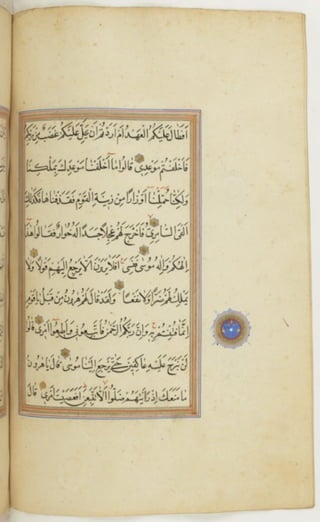 اَفَطَالَ عَلَيْكُمُ الْعَهْدُ اَمْ اَرَدْتُمْ اَنْ يَحِلَّ عَلَيْكُمْ غَضَبٌ مِنْ رَبِّكُمْ
فَاَخْلَفْتُمْ مَوْعِدِي قَالُوا مَا اَخْلَفْنَا مَوْعِدَكَ بِمَلْكِنَا
وَلَكِنَّا حُمِّلْنَا اَوْزَارًا مِنْ زِينَةِ الْقَوْمِ فَقَذَفْنَاهَا فَكَذَلِكَ
اَلْقَى السَّامِرِيُّ فَاَخْرَجَ لَهُمْ عِجْلًا جَسَدًا لَهُ خُوَارٌ فَقَالُوا هَذَا
اِلَهُكُمْ وَاِلَهُ مُوسَى فَنَسِيَ اَفَلَا يَرَوْنَ اَلَّا يَرْجِعُ اِلَيْهِمْ قَوْلًا وَلَا
يَمْلِكُ لَهُمْ ضَرًّا وَلَا نَفْعًا وَلَقَدْ قَالَ لَهُمْ هَرُونُ مِنْ قَبْلُ يَاقَوْمِ
اِنَّمَا فُتِنْتُمْ بِهِ وَاِنَّ رَبَّكُمُ الرَّحْمَنُ فَاتَّبِعُونِي وَاَطِيعُوا اَمْرِي قَالُوا
لَنْ نَبْرَحَ عَلَيْهِ عَاكِفِينَ حَتَّى يَرْجِعَ اِلَيْنَا مُوسَى قَالَ يَاهَرُونُ
مَا مَنَعَكَ اِذْ رَاَيْتَهُمْ ضَلُّوا اَلَّا تَتَّبِعَنِ اَفَعَصَيْتَ اَمْرِي قَالَ